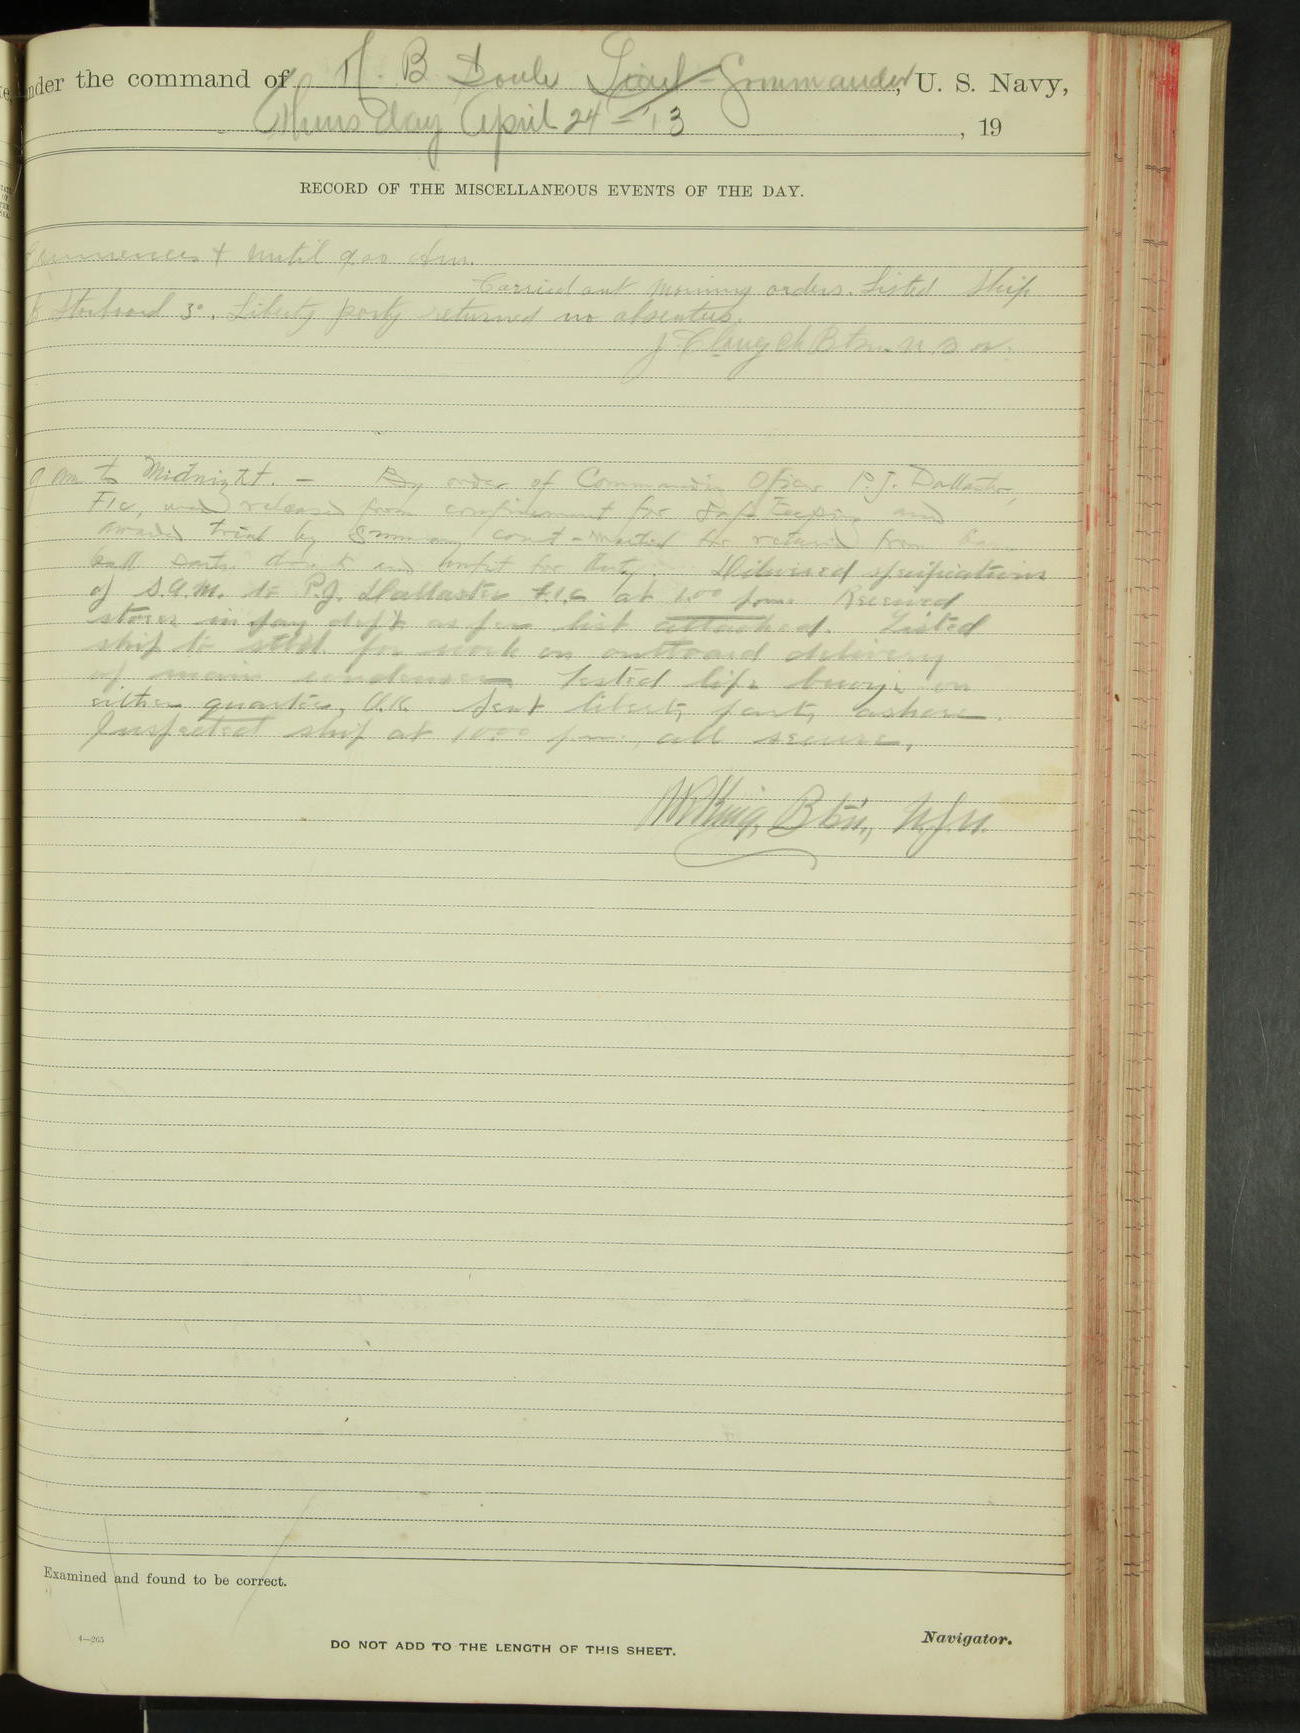 under the command of H. B. Soule Lieut-Commander, U. S. Navy,
Thursday April 24 - '13 , 19
RECORD OF THE MISCELLANEOUS EVENTS OF THE DAY.
Commences & until 9.00 Am.
Carried out morning orders. Listed Ship
to Starboard 3°. Liberty party returned no absentees.
J Clancy Ch Btsn U.S.N.
9 Am to Midnight. — By order of Commanding Officer P.J. Dallaster,
F1c, was released from confinement for safe keeping and
awaits trial by Summary court-martial for return from
ball party drunk and unfit for duty. Delivered specifications
of S.C.M. to P.J. Dallaster F.1.c at 1.00 p.m. Received
stores in pay dept as per list attached. Listed
ship to stbd. for work on outboard delivery
of main condenser. Tested life buoys on
either quarter, O.K. Sent liberty party ashore.
Inspected ship at 10.00 p.m., all secure.
King, Btsn., U.S.N.
Examined and found to be correct.
4—265
DO NOT ADD TO THE LENGTH OF THIS SHEET.
Navigator.